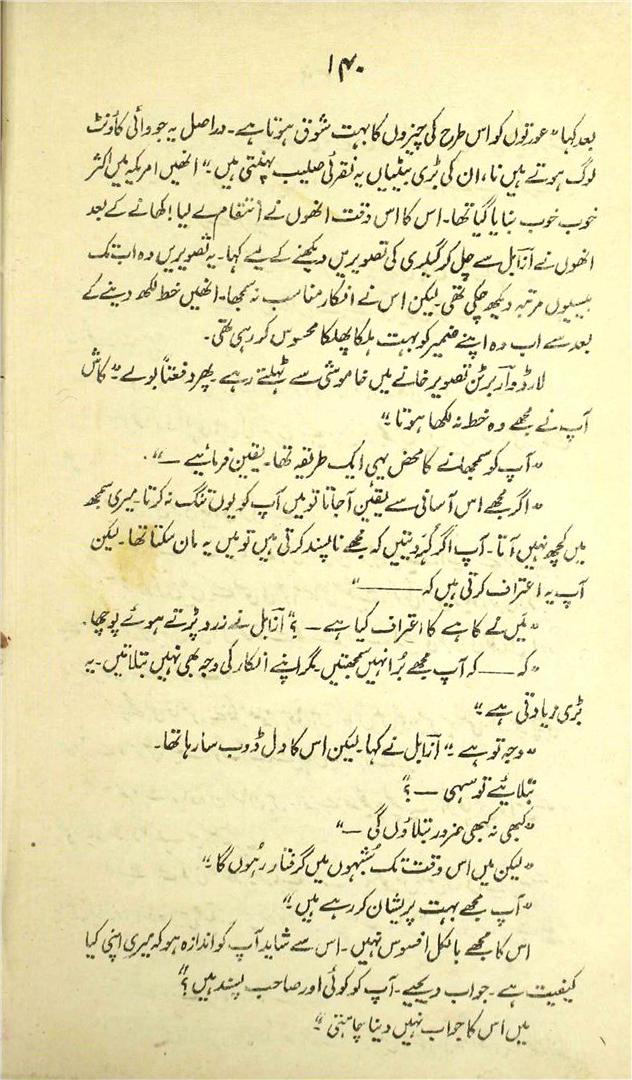 ۱۴۰
بعد کہا "عورتوں کو اس طرح کی چیزوں کا بہت شوق ہوتا ہے۔ دراصل یہ جو وائی کاؤنٹ
لوگ ہوتے ہیں نا، ان کی بڑی بیٹیاں یہ نقرئی صلیب پہنتی ہیں۔" انھیں امریکہ میں اکثر
خوب خوب بنایا گیا تھا۔ اس کا اس وقت انھوں نے انتقام لے لیا! کھانے کے بعد
انھوں نے ازابل سے چل کر گیلری کی تصویریں دیکھنے کے لیے کہا۔ یہ تصویریں وہ اب تک
بیسیوں مرتبہ دیکھ چکی تھی۔ لیکن اس نے انکار مناسب نہ سمجھا۔ انھیں خط لکھ دینے کے
بعد سے اب وہ اپنے ضمیر کو بہت ہلکا پھلکا محسوس کر رہی تھی۔
لارڈ وآربرٹن تصویر خانے میں خاموشی سے ٹہلتے رہے۔ پھر دفعتاً بولے۔ "کاش
آپ نے مجھے وہ خط نہ لکھا ہوتا۔"
"آپ کو سمجھانے کا محض یہی ایک طریقہ تھا۔ یقین فرمائیے —"۔
"اگر مجھے اس آسانی سے یقین آجاتا تو میں آپ کو یوں تنگ نہ کرتا۔ میری سمجھ
میں کچھ نہیں آتا۔ آپ اگر کہہ دیتیں کہ مجھے ناپسند کرتی ہیں تو میں یہ مان سکتا تھا۔ لیکن
آپ یہ اعتراف کرتی ہیں کہ ———"
"میں نے کاہے کا اعتراف کیا ہے —؟" ازابل نے زرد پڑتے ہوئے پوچھا۔
"کہ —— کہ آپ مجھے برا نہیں سمجھتیں۔ مگر اپنے انکار کی وجہ بھی نہیں بتلاتیں۔ یہ
بڑی زیادتی ہے۔"
"وجہ تو ہے۔" ازابل نے کہا۔ لیکن اس کا دل ڈوب سا رہا تھا۔
بتلائیے تو سہی —؟"
"کبھی نہ کبھی ضرور بتلاؤں گی —"
"لیکن میں اس وقت تک شبہوں میں گرفتار رہوں گا۔"
"آپ مجھے بہت پریشان کر رہے ہیں۔"
اس کا مجھے بالکل افسوس نہیں۔ اس سے شاید آپ کو اندازہ ہو کہ میری اپنی کیا
کیفیت ہے۔ جواب دیجیے۔ آپ کو کوئی اور صاحب پسند ہیں؟"
میں اس کا جواب نہیں دینا چاہتی۔"